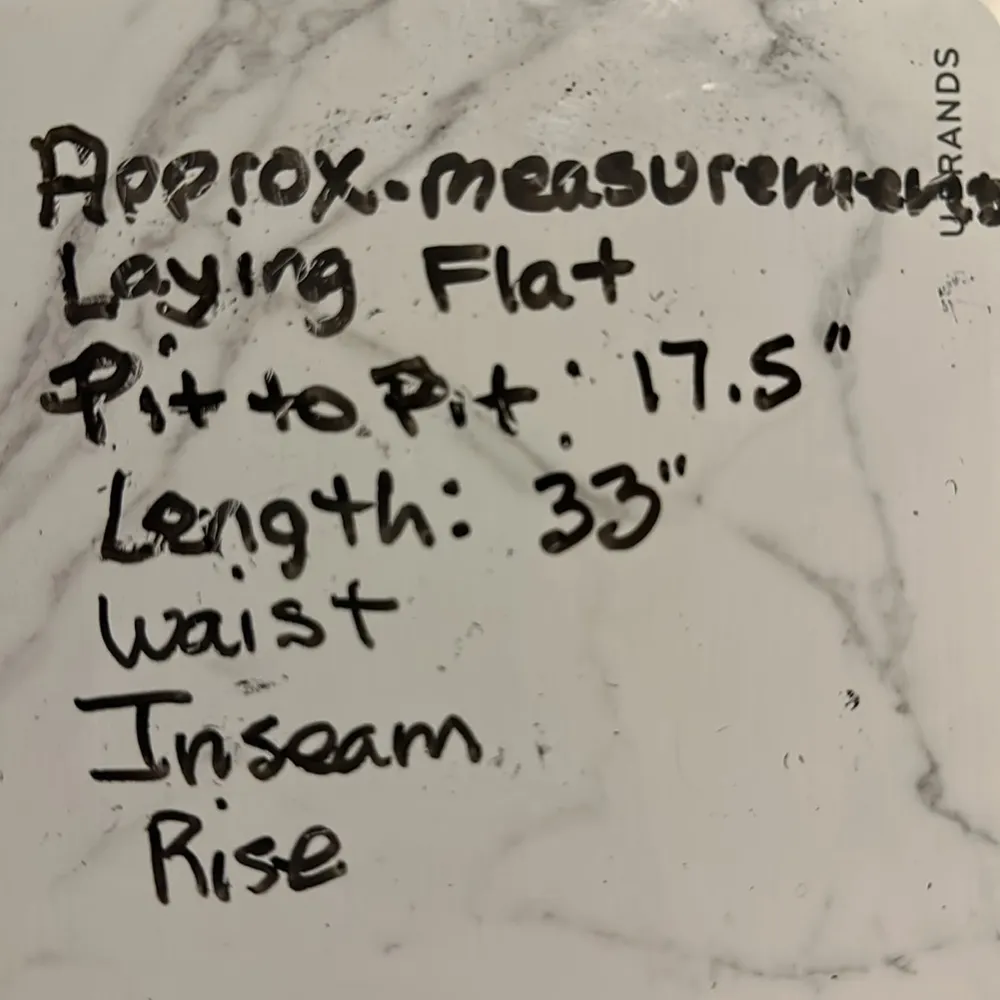 Approx. measurements
Laying Flat
Pit to Pit: 17.5"
Length: 33"
Waist
Inseam
Rise
U BRANDS